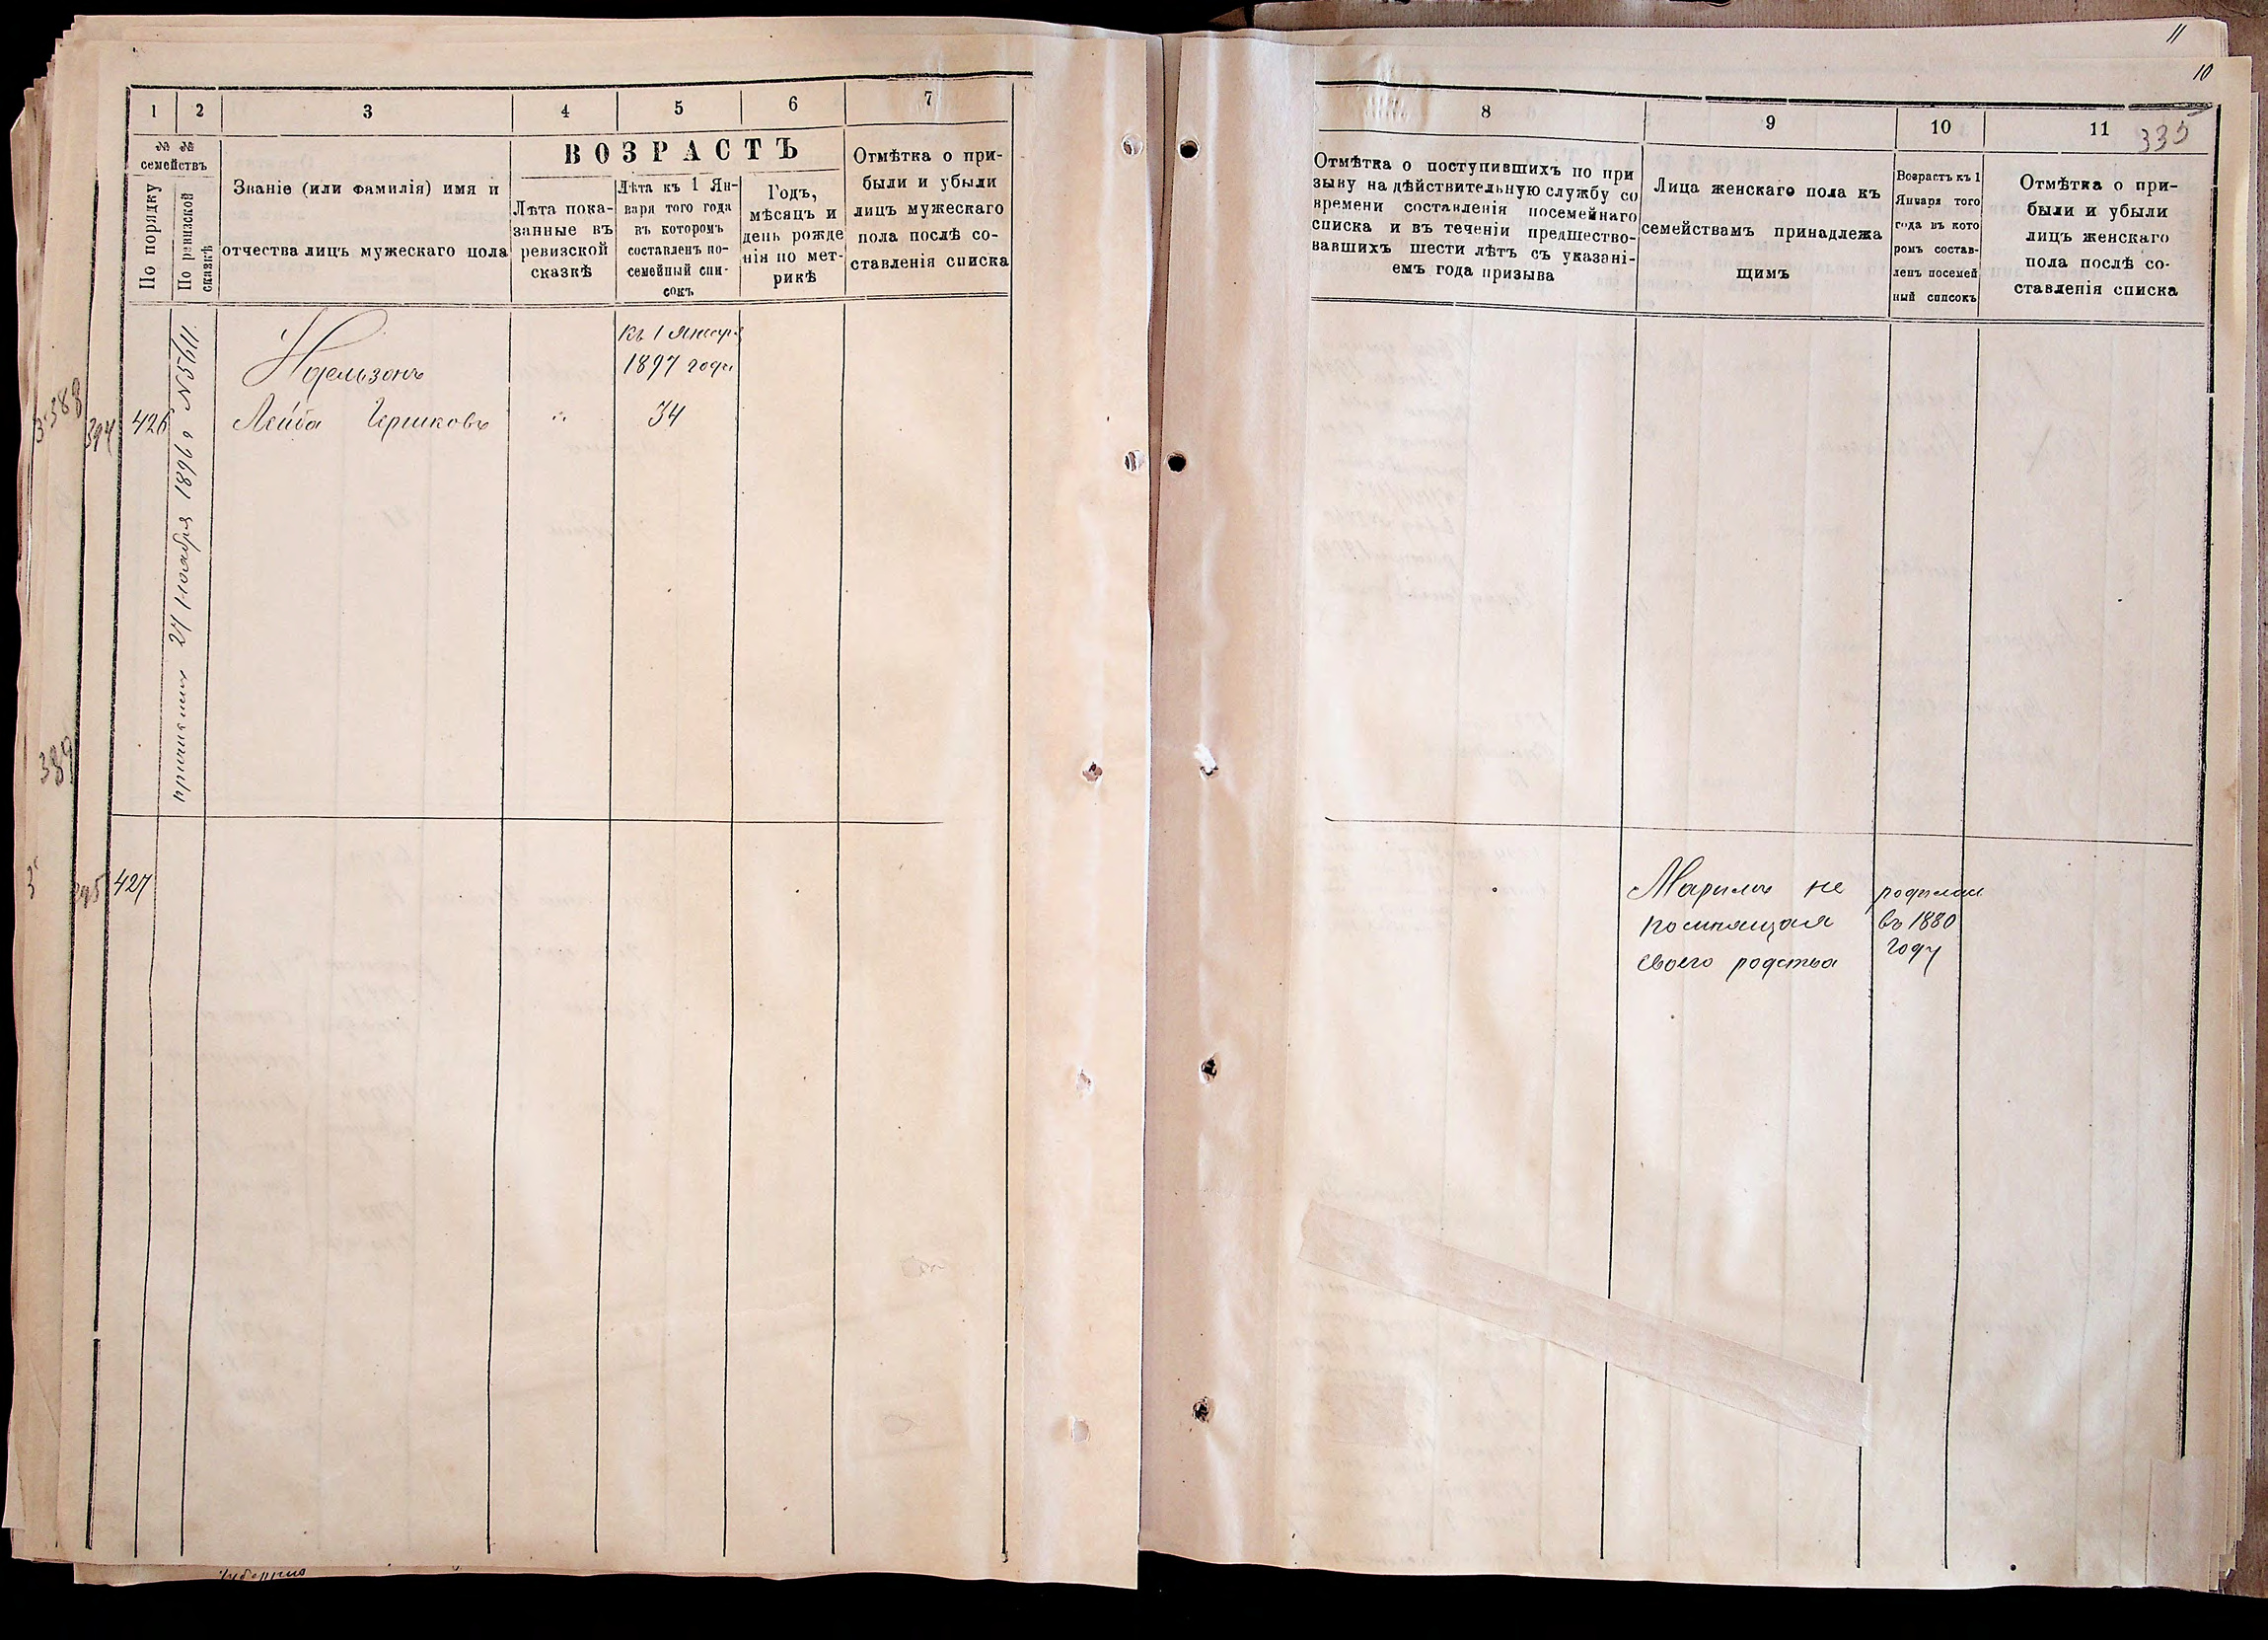 1 2 3 4 5 6 7
№ № семействъ
По порядку
По ревизской сказкѣ
Званіе (или фамилія) имя и
отчества лицъ мужескаго пола
ВОЗРАСТЪ
Лѣта пока-
занные въ
ревизской
сказкѣ
Лѣта къ 1 Ян-
варя того года
въ которомъ
составленъ по-
семейный спи-
сокъ
Годъ,
мѣсяцъ и
день рожде
нія по мет-
рикѣ
Отмѣтка о при-
были и убыли
лицъ мужескаго
пола послѣ со-
ставленія списка
къ 1 Января
1897 года
426 Лейба Гершковъ 34
27 ноября 1896 г № 5611
388
394
389
427
11
10
335
8 9 10 11
Отмѣтка о поступившихъ по при
зыву на дѣйствительную службу со
времени составленія посемейнаго
списка и въ теченіи предшество-
вавшихъ шести лѣтъ съ указані-
емъ года призыва
Лица женскаго пола къ
семействамъ принадлежа
щимъ
Возрастъ къ 1
Января того
года въ кото
ромъ состав-
ленъ посемей
ный списокъ
Отмѣтка о при-
были и убыли
лицъ женскаго
пола послѣ со-
ставленія списка
не
помнящая
своего родства
родилась
въ 1880
году